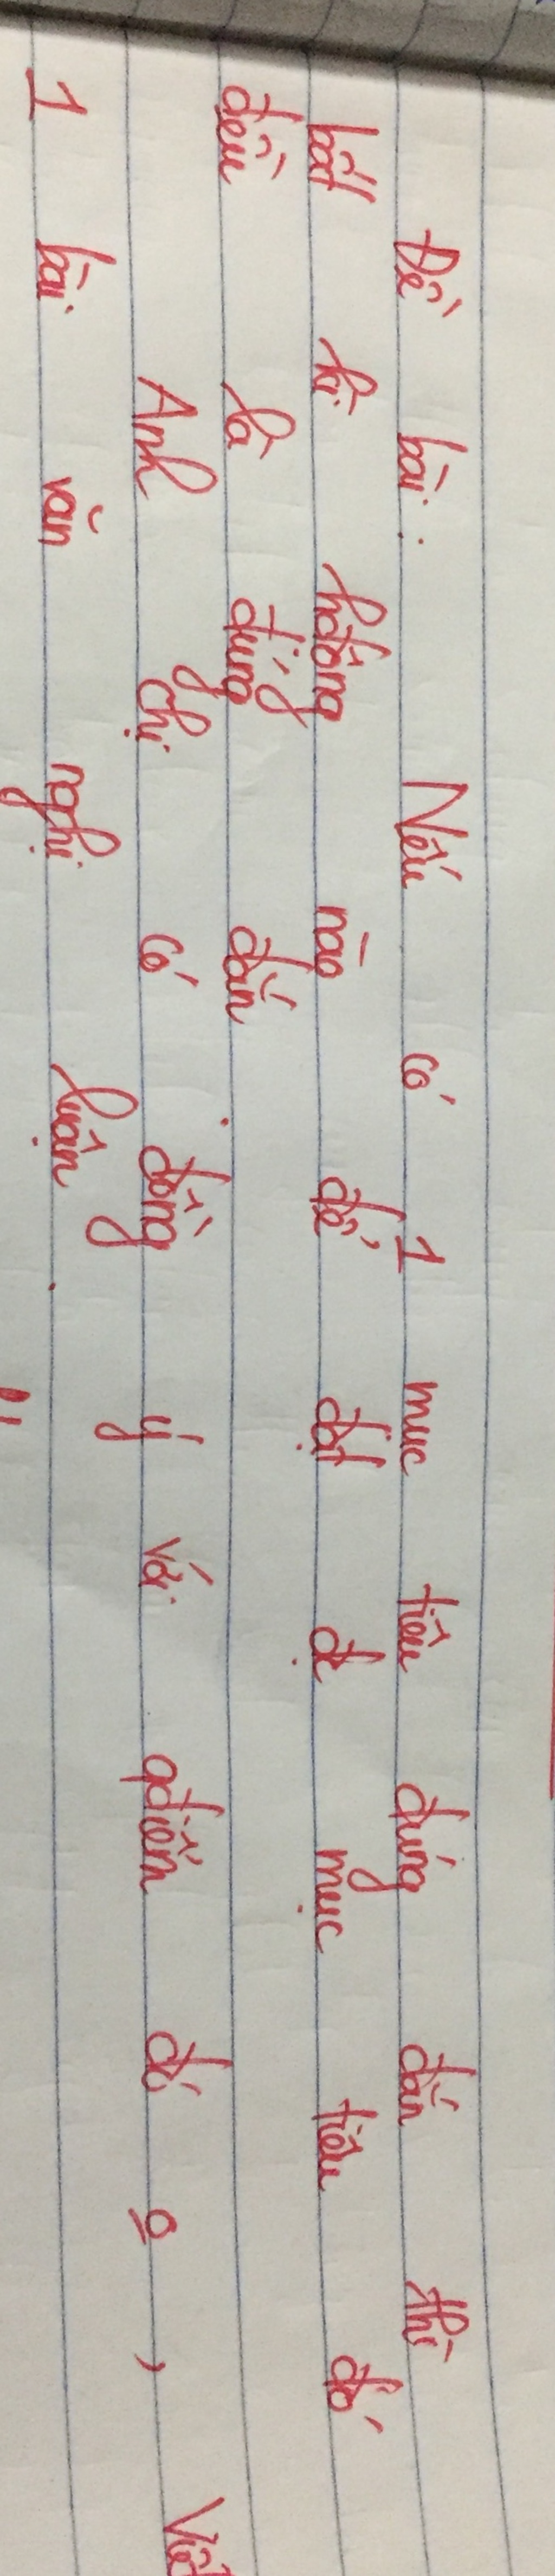 Đề bài: Nếu có 1 mục tiêu đúng đắn thì
bất kì hướng nào để đạt đc mục tiêu đó
đều là đúng đắn.
Anh chị có đồng ý với qđiểm đó o, Viết
1 bài văn nghị luận.